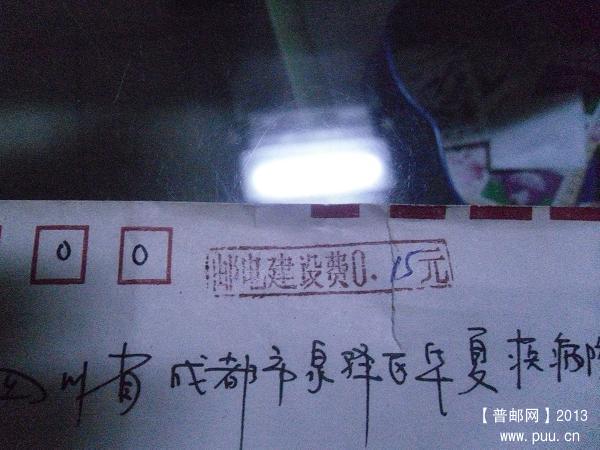 0 0
邮电建设费0.15元
四川省成都市泉驿区华夏疾病
【普邮网】2013
www.puu.cn